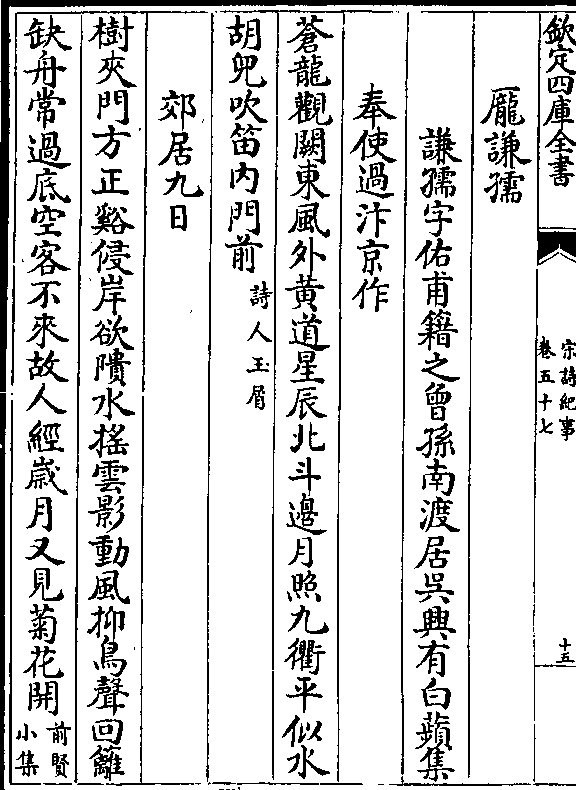 欽定四庫全書
宋詩紀事
卷五十七
十五
龎謙孺
謙孺字佑甫籍之曾孫南渡居吳興有白蘋集
奉使過汴京作
蒼龍觀闕東風外黄道星辰北斗邉月照九衢平似水
胡兒吹笛内門前
詩人玉屑
郊居九日
樹夾門方正谿侵岸欲隤水揺雲影動風抑鳥聲回籬
缺舟常過底空客不來故人經嵗月又見菊花開
前賢
小集